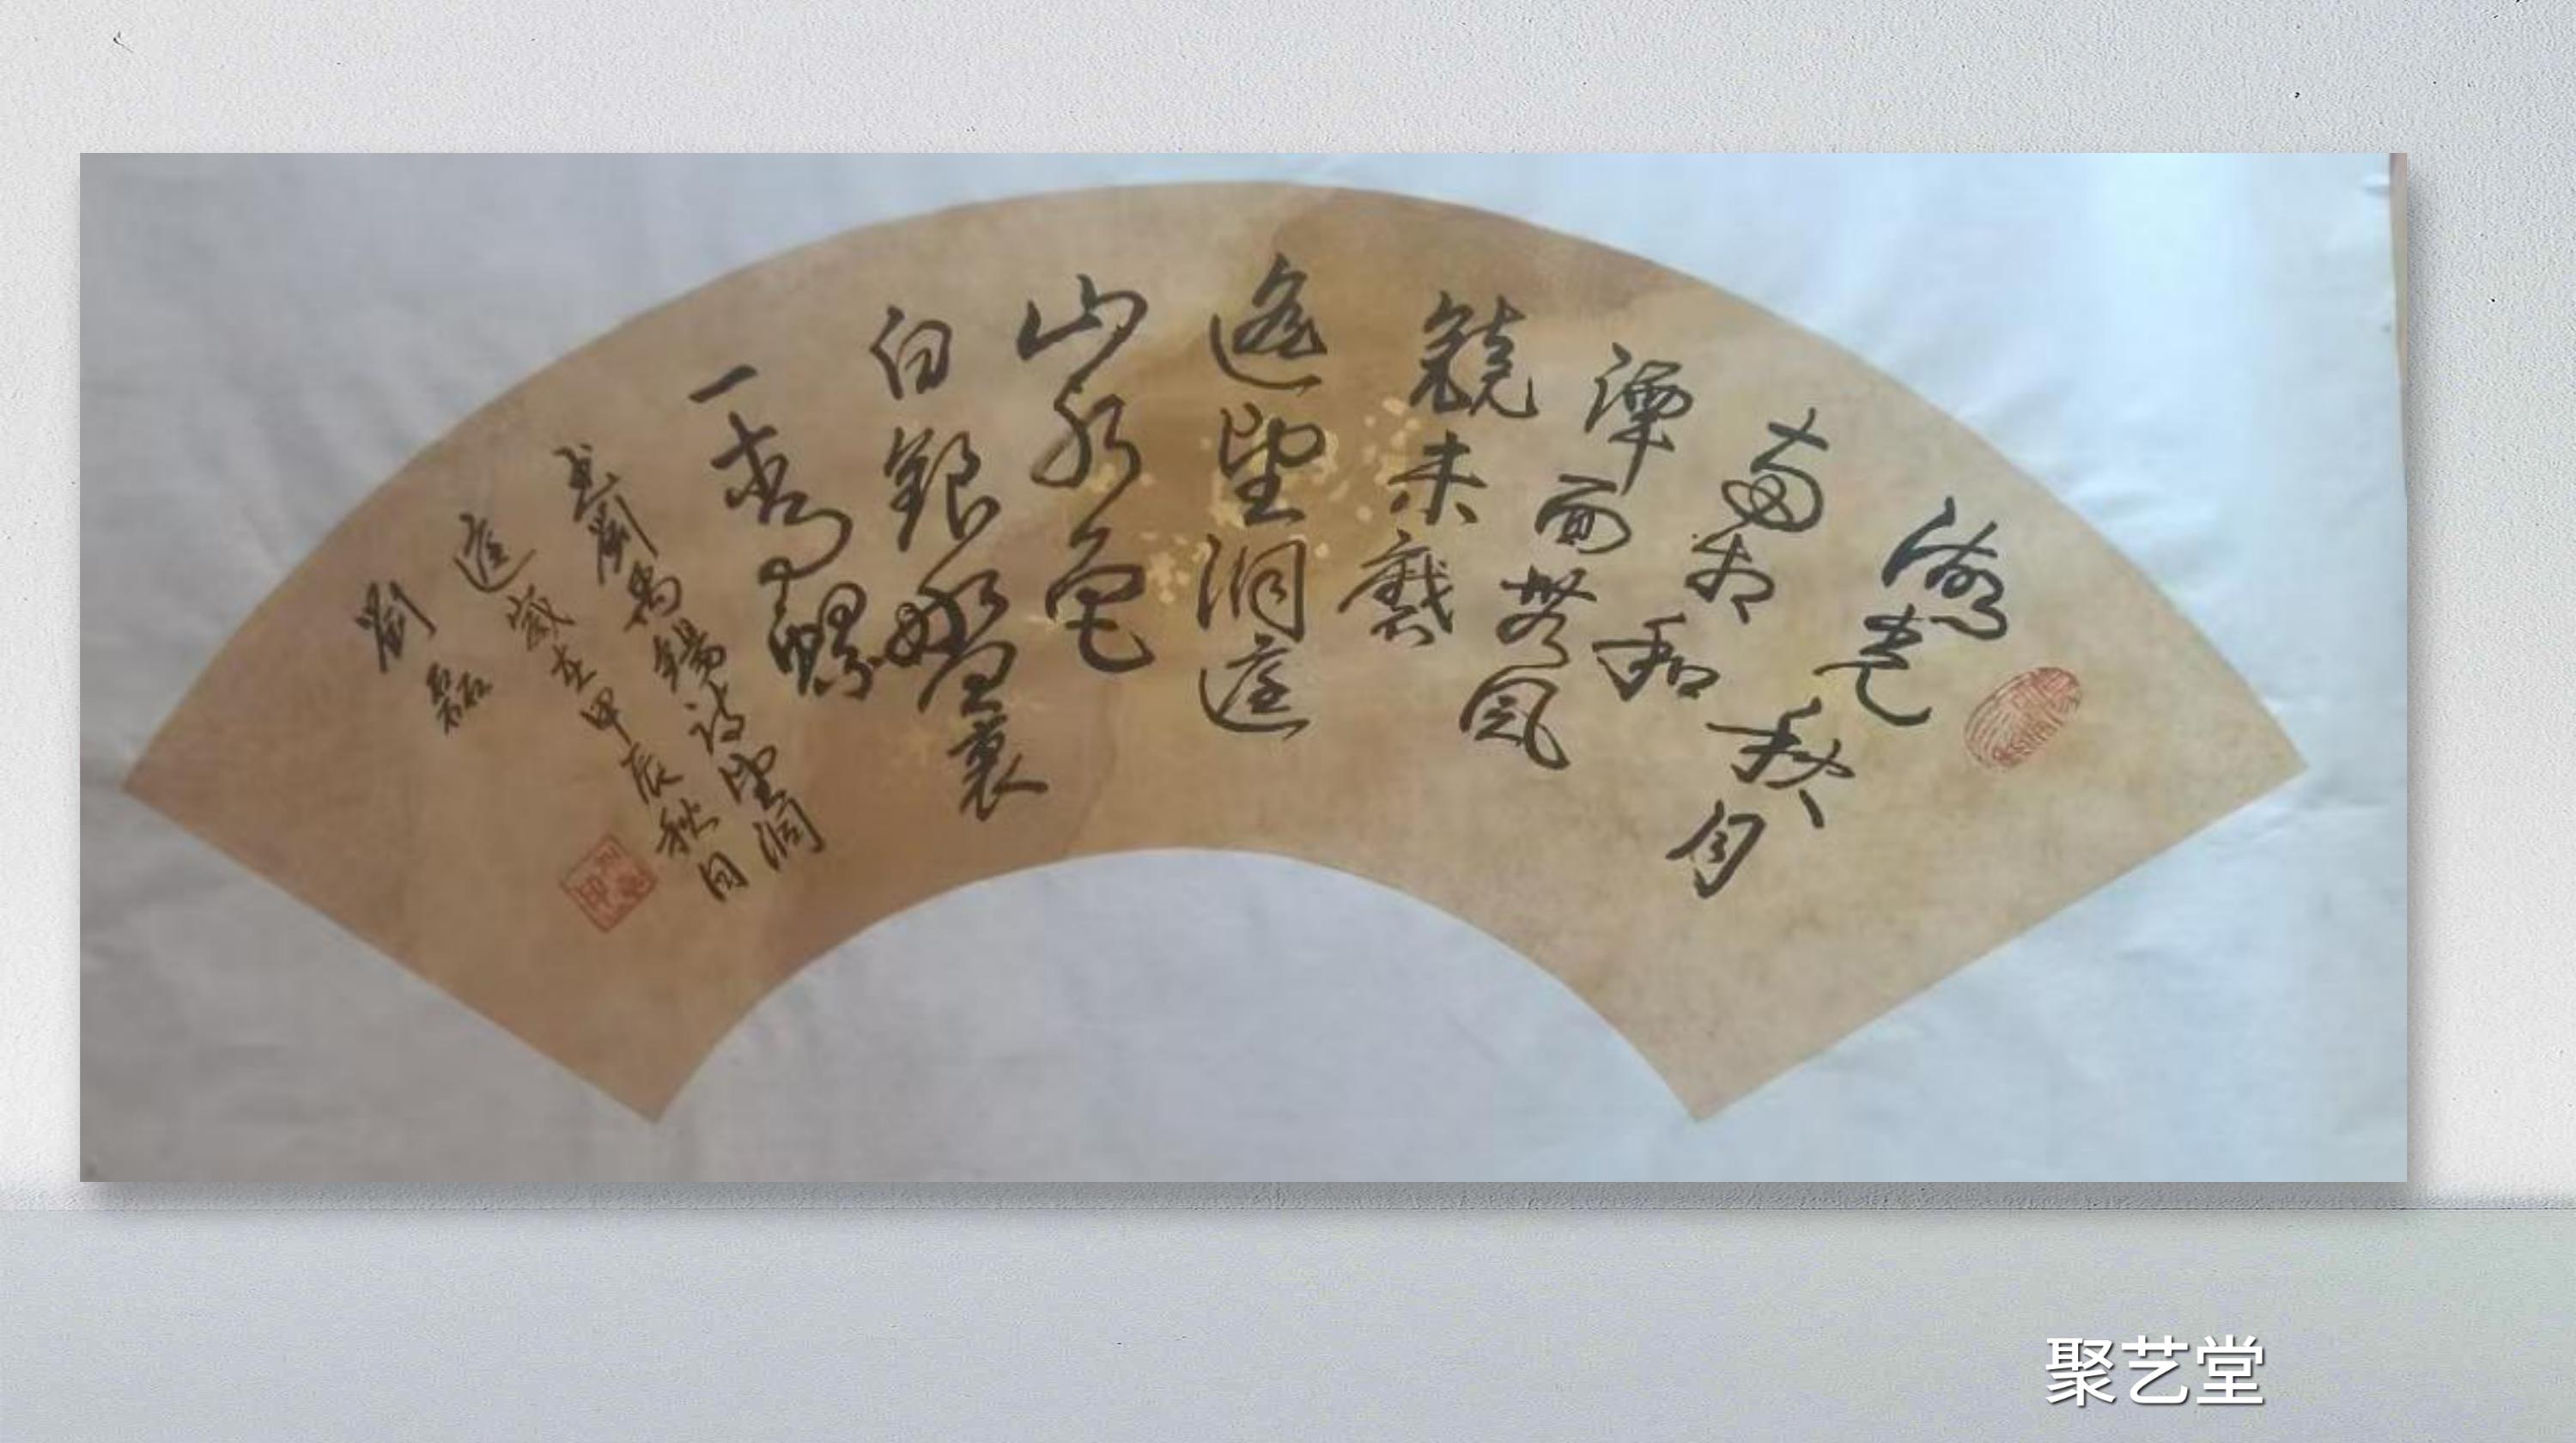 湖光秋月
兩相和
潭面無風
鏡未磨
遙望洞庭
山水色
白銀盤裏
一青螺
书劉禹錫詩望洞
庭歲在甲辰秋月
劉磊
聚艺堂